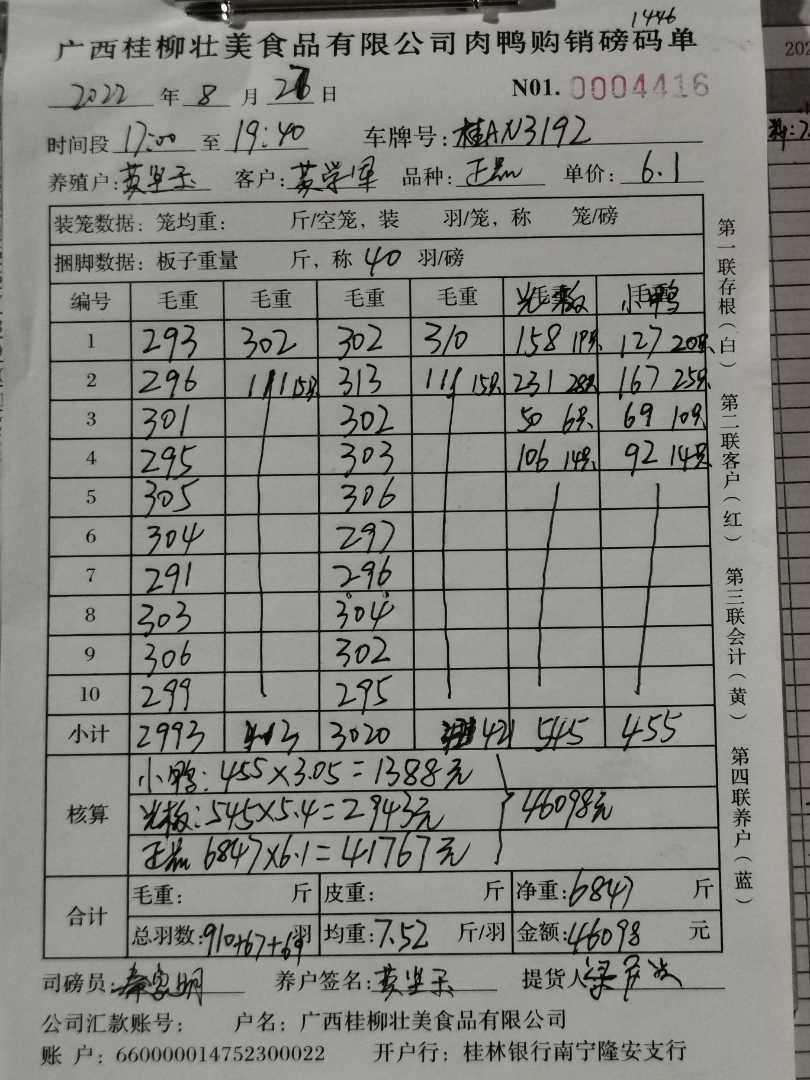 1446
广西桂柳壮美食品有限公司肉鸭购销磅码单
2022 年 8 月 27 日 N01. 0004416
时间段 17:00 至 19:40 车牌号: 桂AN3192
养殖户: 黄坚 客户: 黄学军 品种: 正品 单价: 6.1
装笼数据: 笼均重: 斤/空笼, 装 羽/笼, 称 笼/磅
捆脚数据: 板子重量 斤, 称 40 羽/磅
编号 毛重 毛重 毛重 毛重 光板 小鸭
1 293 302 302 310 158 19只 127 20只
2 296 111 15只 313 111 15只 231 28只 167 25只
3 301 302 50 6只 69 10只
4 295 303 106 14只 92 14只
5 305 306
6 304 297
7 291 296
8 303 304
9 306 302
10 299 295
小计 2993 413 3020 421 545 455
核算
小鸭: 455×3.05=1388元
光板: 545×5.4=2943元
正品 6847×6.1=41767元
46098元
合计
毛重: 斤 皮重: 斤 净重: 6847 斤
总羽数: 910+67+69 羽 均重: 7.52 斤/羽 金额: 46098 元
司磅员: 秦家明 养户签名: 黄坚 提货人 梁
公司汇款账号: 户名: 广西桂柳壮美食品有限公司
账 户: 660000014752300022 开户行: 桂林银行南宁隆安支行
第一联存根(白) 第二联客户(红) 第三联会计(黄) 第四联养户(蓝)
202